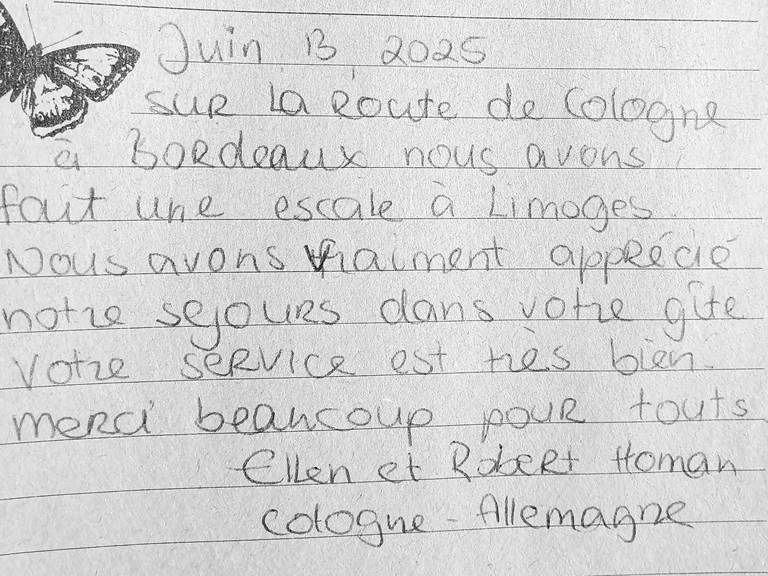 Juin 13, 2025
sur la route de Cologne
à Bordeaux nous avons
fait une escale à Limoges.
Nous avons vraiment apprécié
notre sejours dans votre gîte
Votre service est très bien.
merci beaucoup pour touts
Ellen et Robert Homan
Cologne - Allemagne